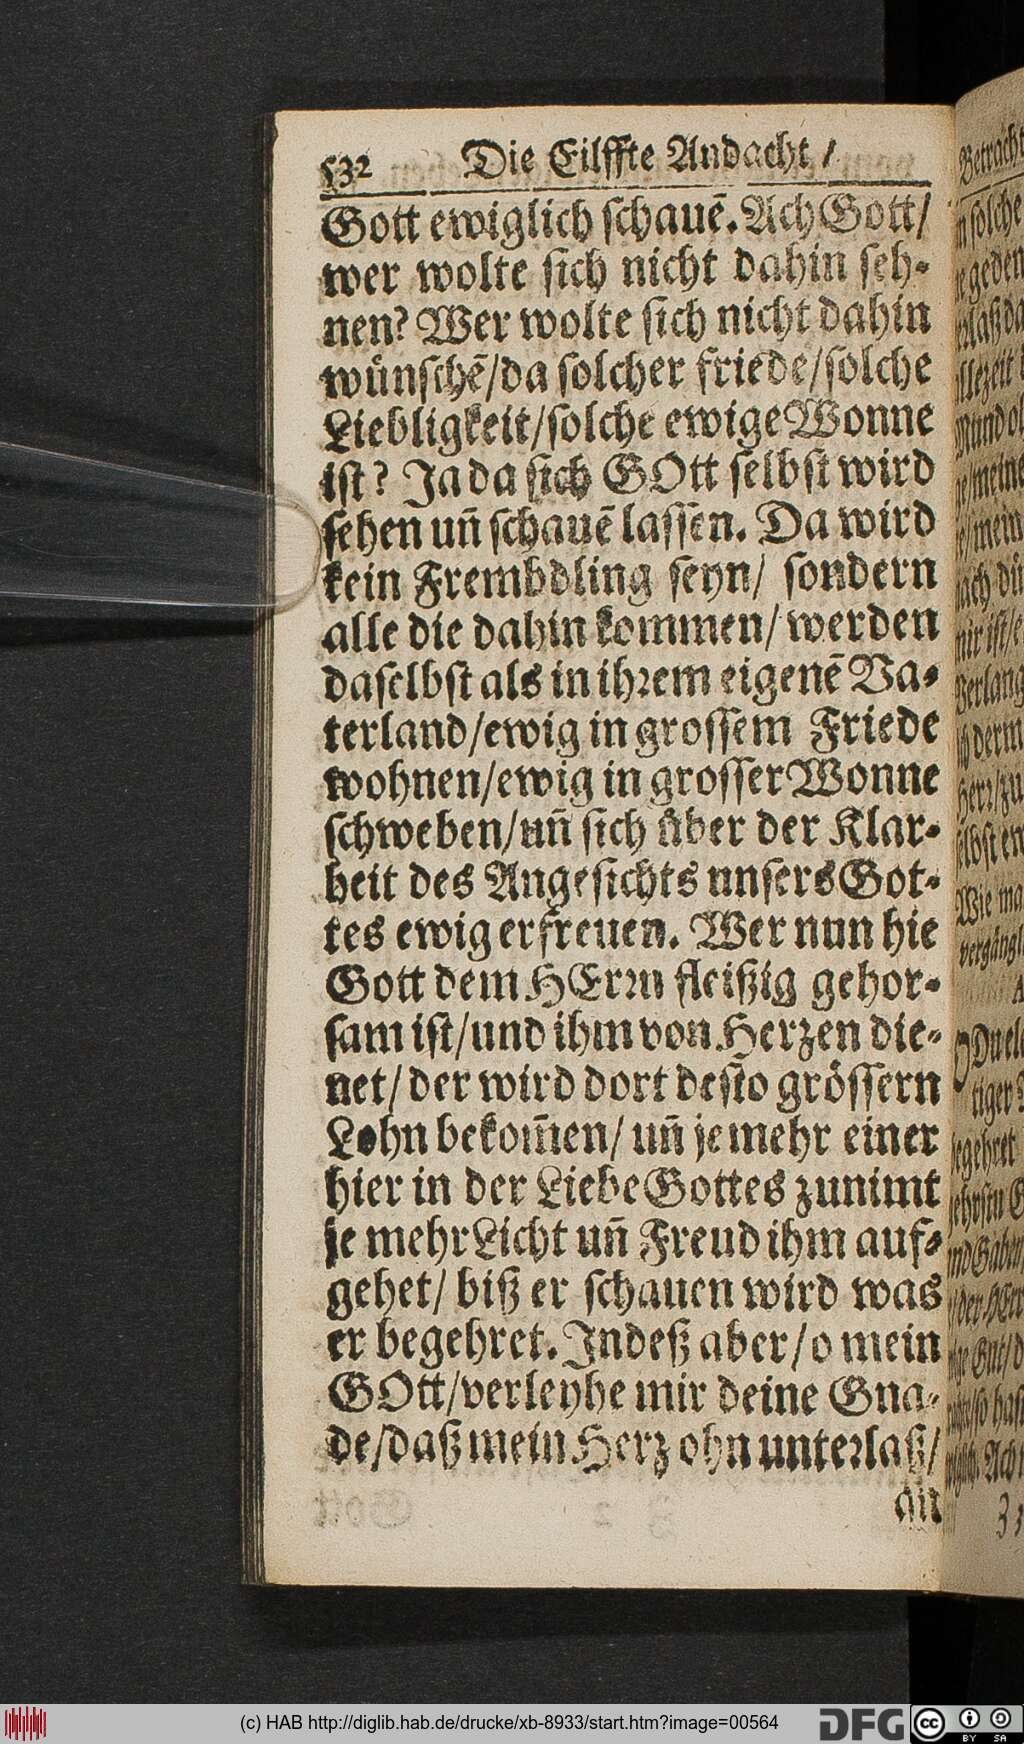 532 Die Eilffte Andacht /
Gott ewiglich schauē. Ach Gott/
wer wolte sich nicht dahin seh-
nen? Wer wolte sich nicht dahin
wünschē/da solcher friede/solche
Liebligkeit/solche ewige Wonne
ist? Ja da sich GOtt selbst wird
sehen uñ schauē lassen. Da wird
kein Frembdling seyn/ sondern
alle die dahin kommen/ werden
daselbst als in ihrem eigenē Va-
terland/ewig in grossem Friede
wohnen/ewig in grosser Wonne
schweben/uñ sich über der Klar-
heit des Angesichts unsers Got-
tes ewig erfreuen. Wer nun hie
Gott dem HErrn fleißig gehor-
sam ist/und ihm von Herzen die-
net/ der wird dort desto grössern
Lohn bekom̃en/ uñ je mehr einer
hier in der Liebe Gottes zunimt
je mehr Licht uñ Freud ihm auf-
gehet/ biß er schauen wird was
er begehret. Indeß aber/o mein
GOtt/verleyhe mir deine Gna-
de/daß mein Herz ohn unterlaß/
an
Betracht
n solche
geden
llezeit
meine
mein
mir ist/
Verlang
derm
Herr/zu
selbst
Wie
vergängl
O Du
tiger
begehret
(c) HAB http://diglib.hab.de/drucke/xb-8933/start.htm?image=00564
DFG
cc BY SA